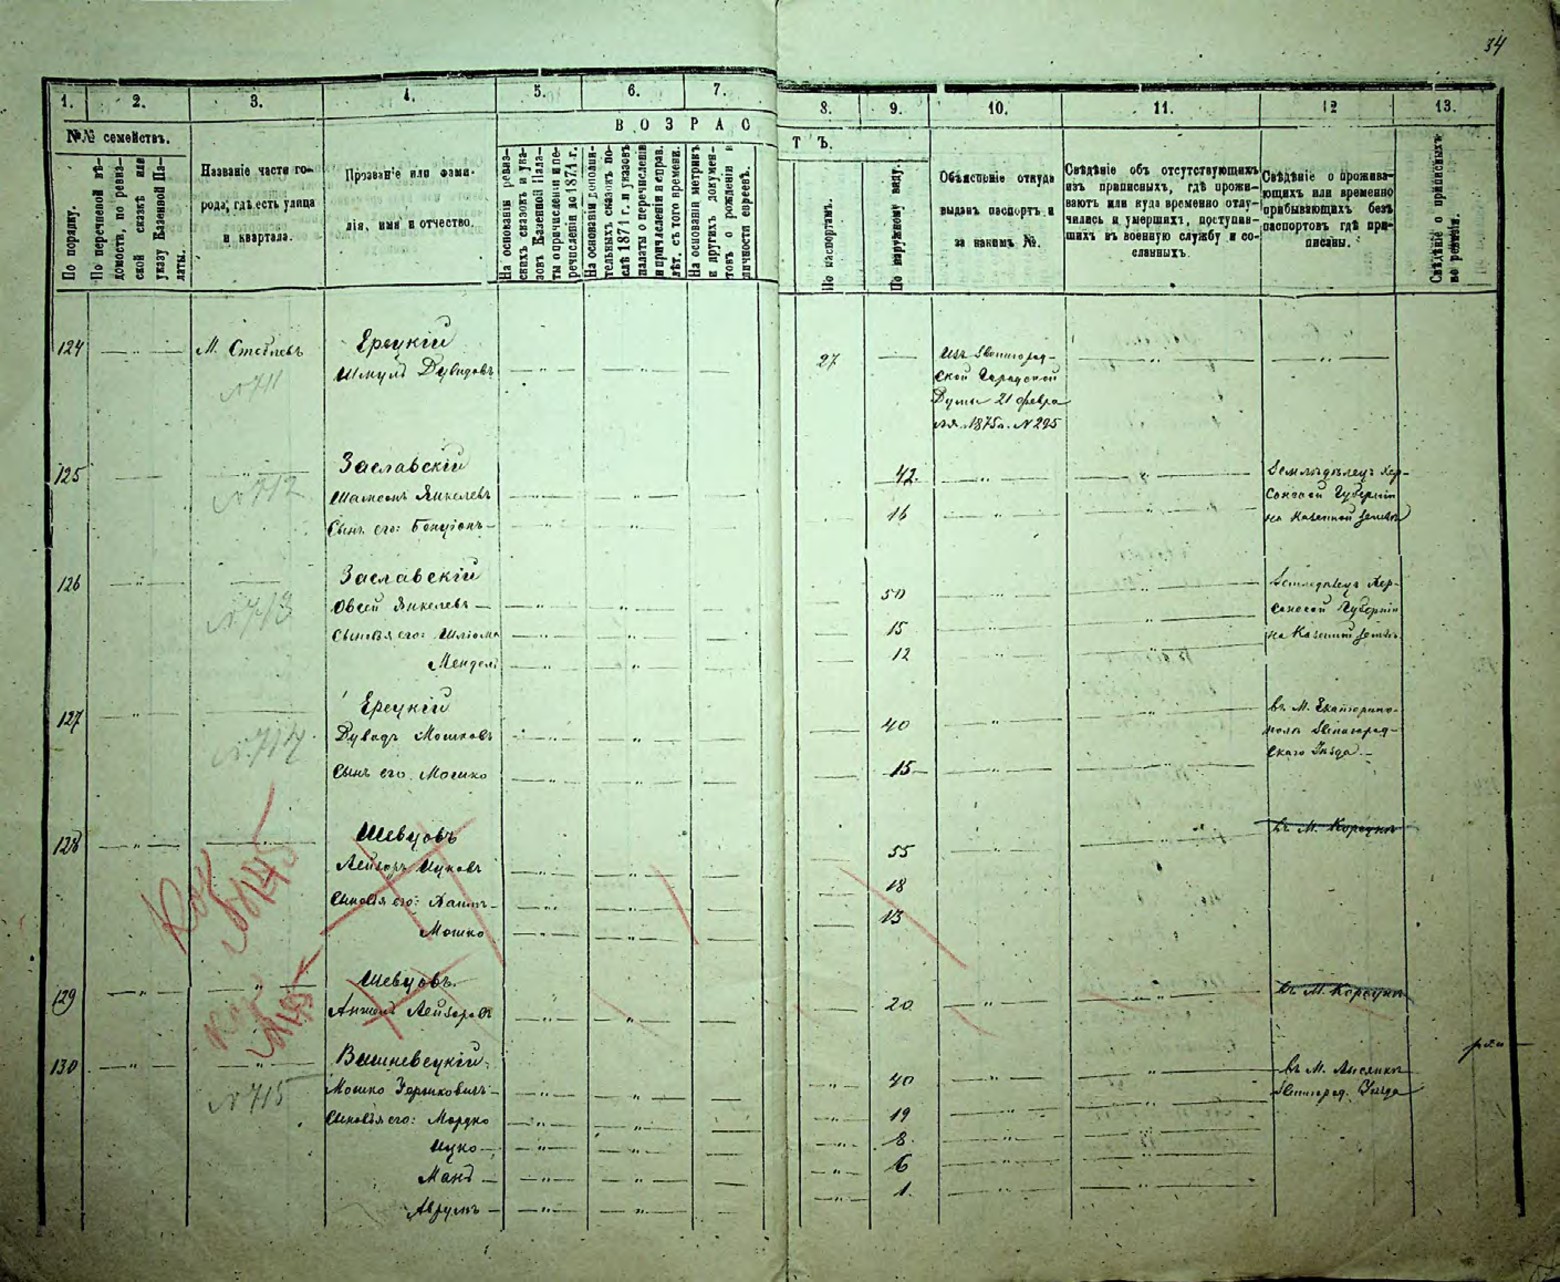 34
1. 2. 3. 4. 5. 6. 7. 8. 9. 10. 11. 12 13.
№№ семействъ.
В О З Р А С Т Ъ.
По порядку.
По перечневой вѣ-
домости, по ревиз-
ской сказкѣ или
указу Казенной Па-
латы.
Названіе части го-
рода, гдѣ есть улица
и квартала.
Прозваніе или фами-
лія, имя и отчество.
На основаніи ревиз-
скихъ сказокъ и ука-
зовъ Казенной Пала-
ты о причисленіи и пе-
речисленіи до 1871 г.
На основаніи дополни-
тельныхъ сказокъ по-
слѣ 1871 г. и указовъ
палаты о перечисленіи
и причисленіи и справ.
лѣт. съ того времени.
На основаніи метрикъ
и другихъ докумен-
товъ о рожденіи и
личности евреевъ.
По паспортамъ.
По наружному виду.
Объясненіе откуда
выданъ паспортъ и
за какимъ №.
Свѣдѣніе объ отсутствующихъ
изъ приписныхъ, гдѣ прожи-
ваютъ или куда временно отлу-
чились и умершихъ, поступив-
шихъ въ военную службу и со-
сланныхъ.
Свѣдѣніе о прожива-
ющихъ или временно
прибывающихъ безъ
паспортовъ гдѣ при-
писаны.
Свѣдѣніе о приписныхъ
по ревизіи.
124 М. Стеблевъ Ерецкій
Шмулъ Дувидовъ 27 Изъ Звенигород-
ской Городской
Думы 21 февра
ля 1875г. N 295
N 711
125 Заславскій
N 712
Шамсонъ Янкелевъ 42 Земледѣлецъ Хер-
сонской Губерніи
на Казенной землѣ
Сынъ его: 16
126 Заславскій
N 713
Овсей Янкелевъ 50 Земледѣлецъ Хер-
сонской Губерніи
на Казенной землѣ
Сыновья его: Шліома 15
Мендель 12
127 Ерецкій
N 714
Дувидъ Мошковъ 40 въ М. Екатерино-
полѣ Звенигород-
скаго Уѣзда
Сынъ его Мошко 15
128 Шевцовъ
Лейзоръ Ицковъ 55 въ М. Корсунѣ
Сыновья его: 18
Мошко 13
N 145
129 Шевцовъ
Лейзоровъ 20 въ М. Корсунѣ
N 145
130 Вишневецкій
N 715
Мошко 40 въ М. Лисянкѣ
Звенигород. Уѣзда
Сыновья его: Мордко 19
Ицко 8
6
Аврумъ 1